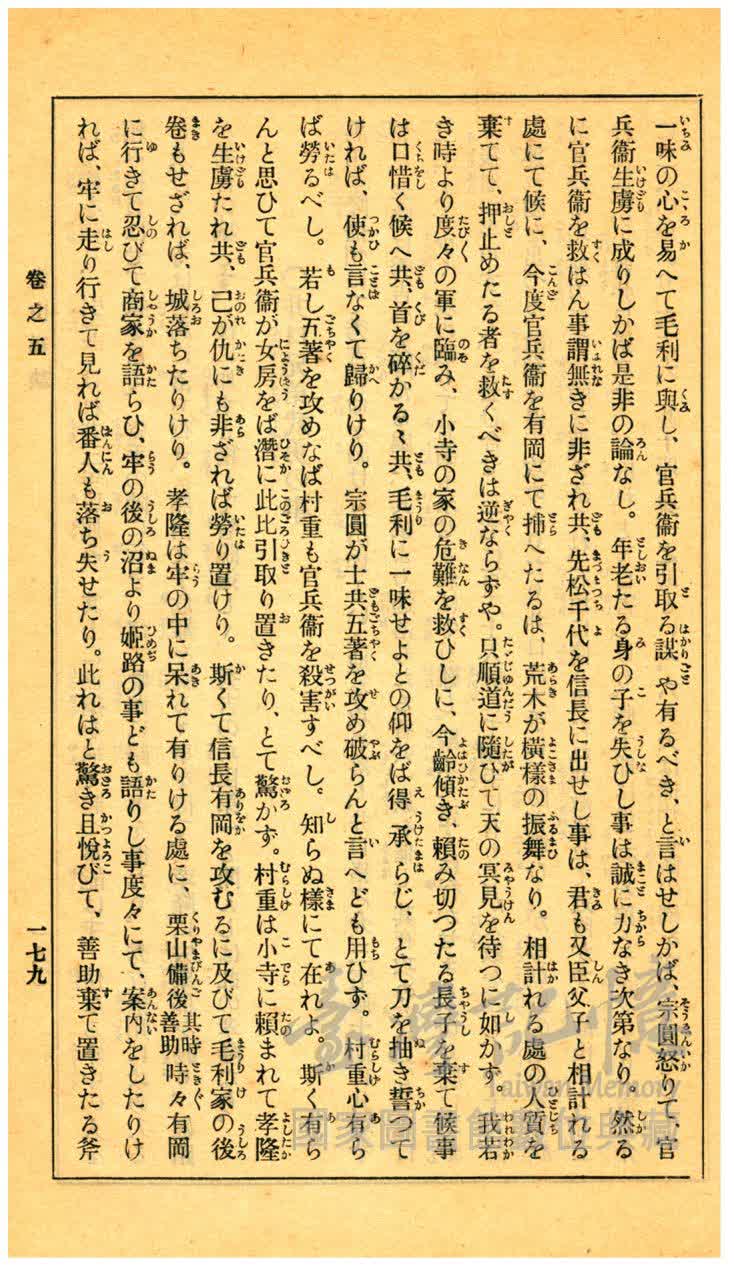 一味の心を易へて毛利に與し、官兵衞を引取る謀や有るべき、と言はせしかば、宗圓怒りて、官
兵衞生虜に成りしかば是非の論なし。年老たる身の子を失ひし事は誠に力なき次第なり。然る
に官兵衞を救はん事謂無きに非ざれ共、先松千代を信長に出せし事は、君も又臣父子と相計れる
處にて候に、今度官兵衞を有岡にて捕へたるは、荒木が橫樣の振舞なり。相計れる處の人質を
棄てて、押止めたる者を救くべきは逆ならずや。只順道に隨ひて天の冥見を待つに如かず。我若
き時より度々の軍に臨み、小寺の家の危難を救ひしに、今齡傾き、賴み切つたる長子を棄て候事
は口惜く候へ共、首を碎かるゝ共、毛利に一味せよとの仰をば得承らじ、とて刀を抽き誓つて
ければ、使も言なくて歸りけり。宗圓が士共五著を攻め破らんと言へども用ひず。村重心有ら
ば勞るべし。若し五著を攻めなば村重も官兵衞を殺害すべし。知らぬ樣にて在れよ。斯く有ら
んと思ひて官兵衞が女房をば潛に此比引取り置きたり、とて驚かず。村重は小寺に賴まれて孝隆
を生虜たれ共、己が仇にも非ざれば勞り置けり。斯くて信長有岡を攻むるに及びて毛利家の後
卷もせざれば、城落ちたりけり。孝隆は牢の中に呆れて有りける處に、栗山備後其時善助時々有岡
に行きて忍びて商家を語らひ、牢の後の沼より姬路の事ども語りし事度々にて、案內をしたりけ
れば、牢に走り行きて見れば番人も落ち失せたり。此れはと驚き且悅びて、善助棄て置きたる斧
卷之五
一七九
臺灣記憶
Taiwan Memory
國家圖書館數位典藏